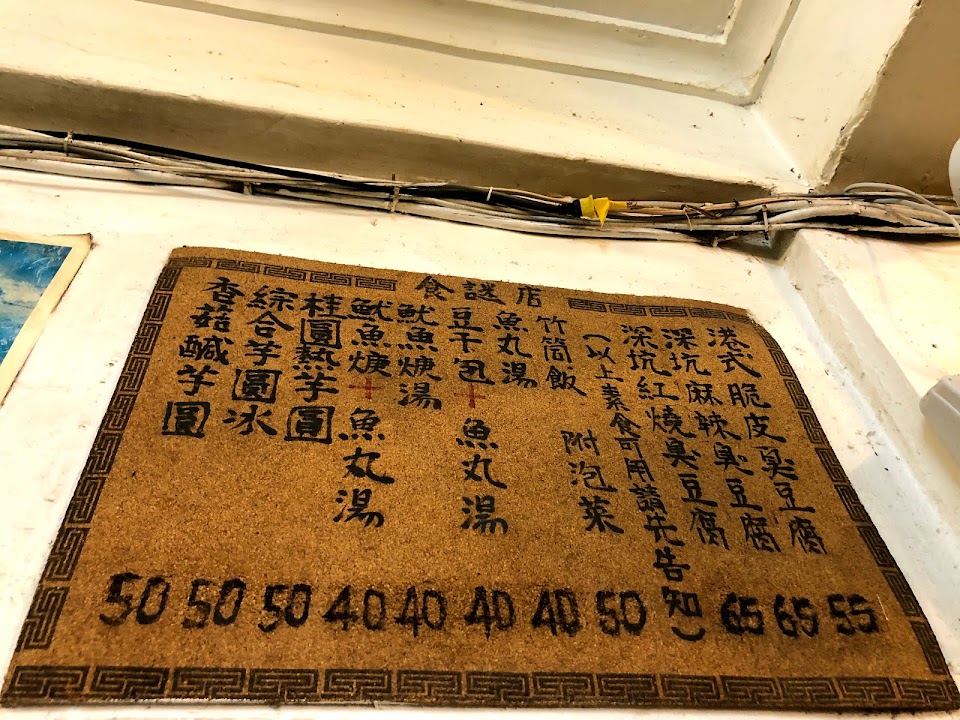 食謎店
港式脆皮臭豆腐 55
深坑麻辣臭豆腐 65
深坑紅燒臭豆腐 65
(以上素食可用請先告知)
竹筒飯 附泡菜 50
魚丸湯 40
豆干包+魚丸湯 40
魷魚焿湯 40
魷魚焿+魚丸湯 40
桂圓熱芋圓 50
綜合芋圓冰 50
香菇鹹芋圓 50